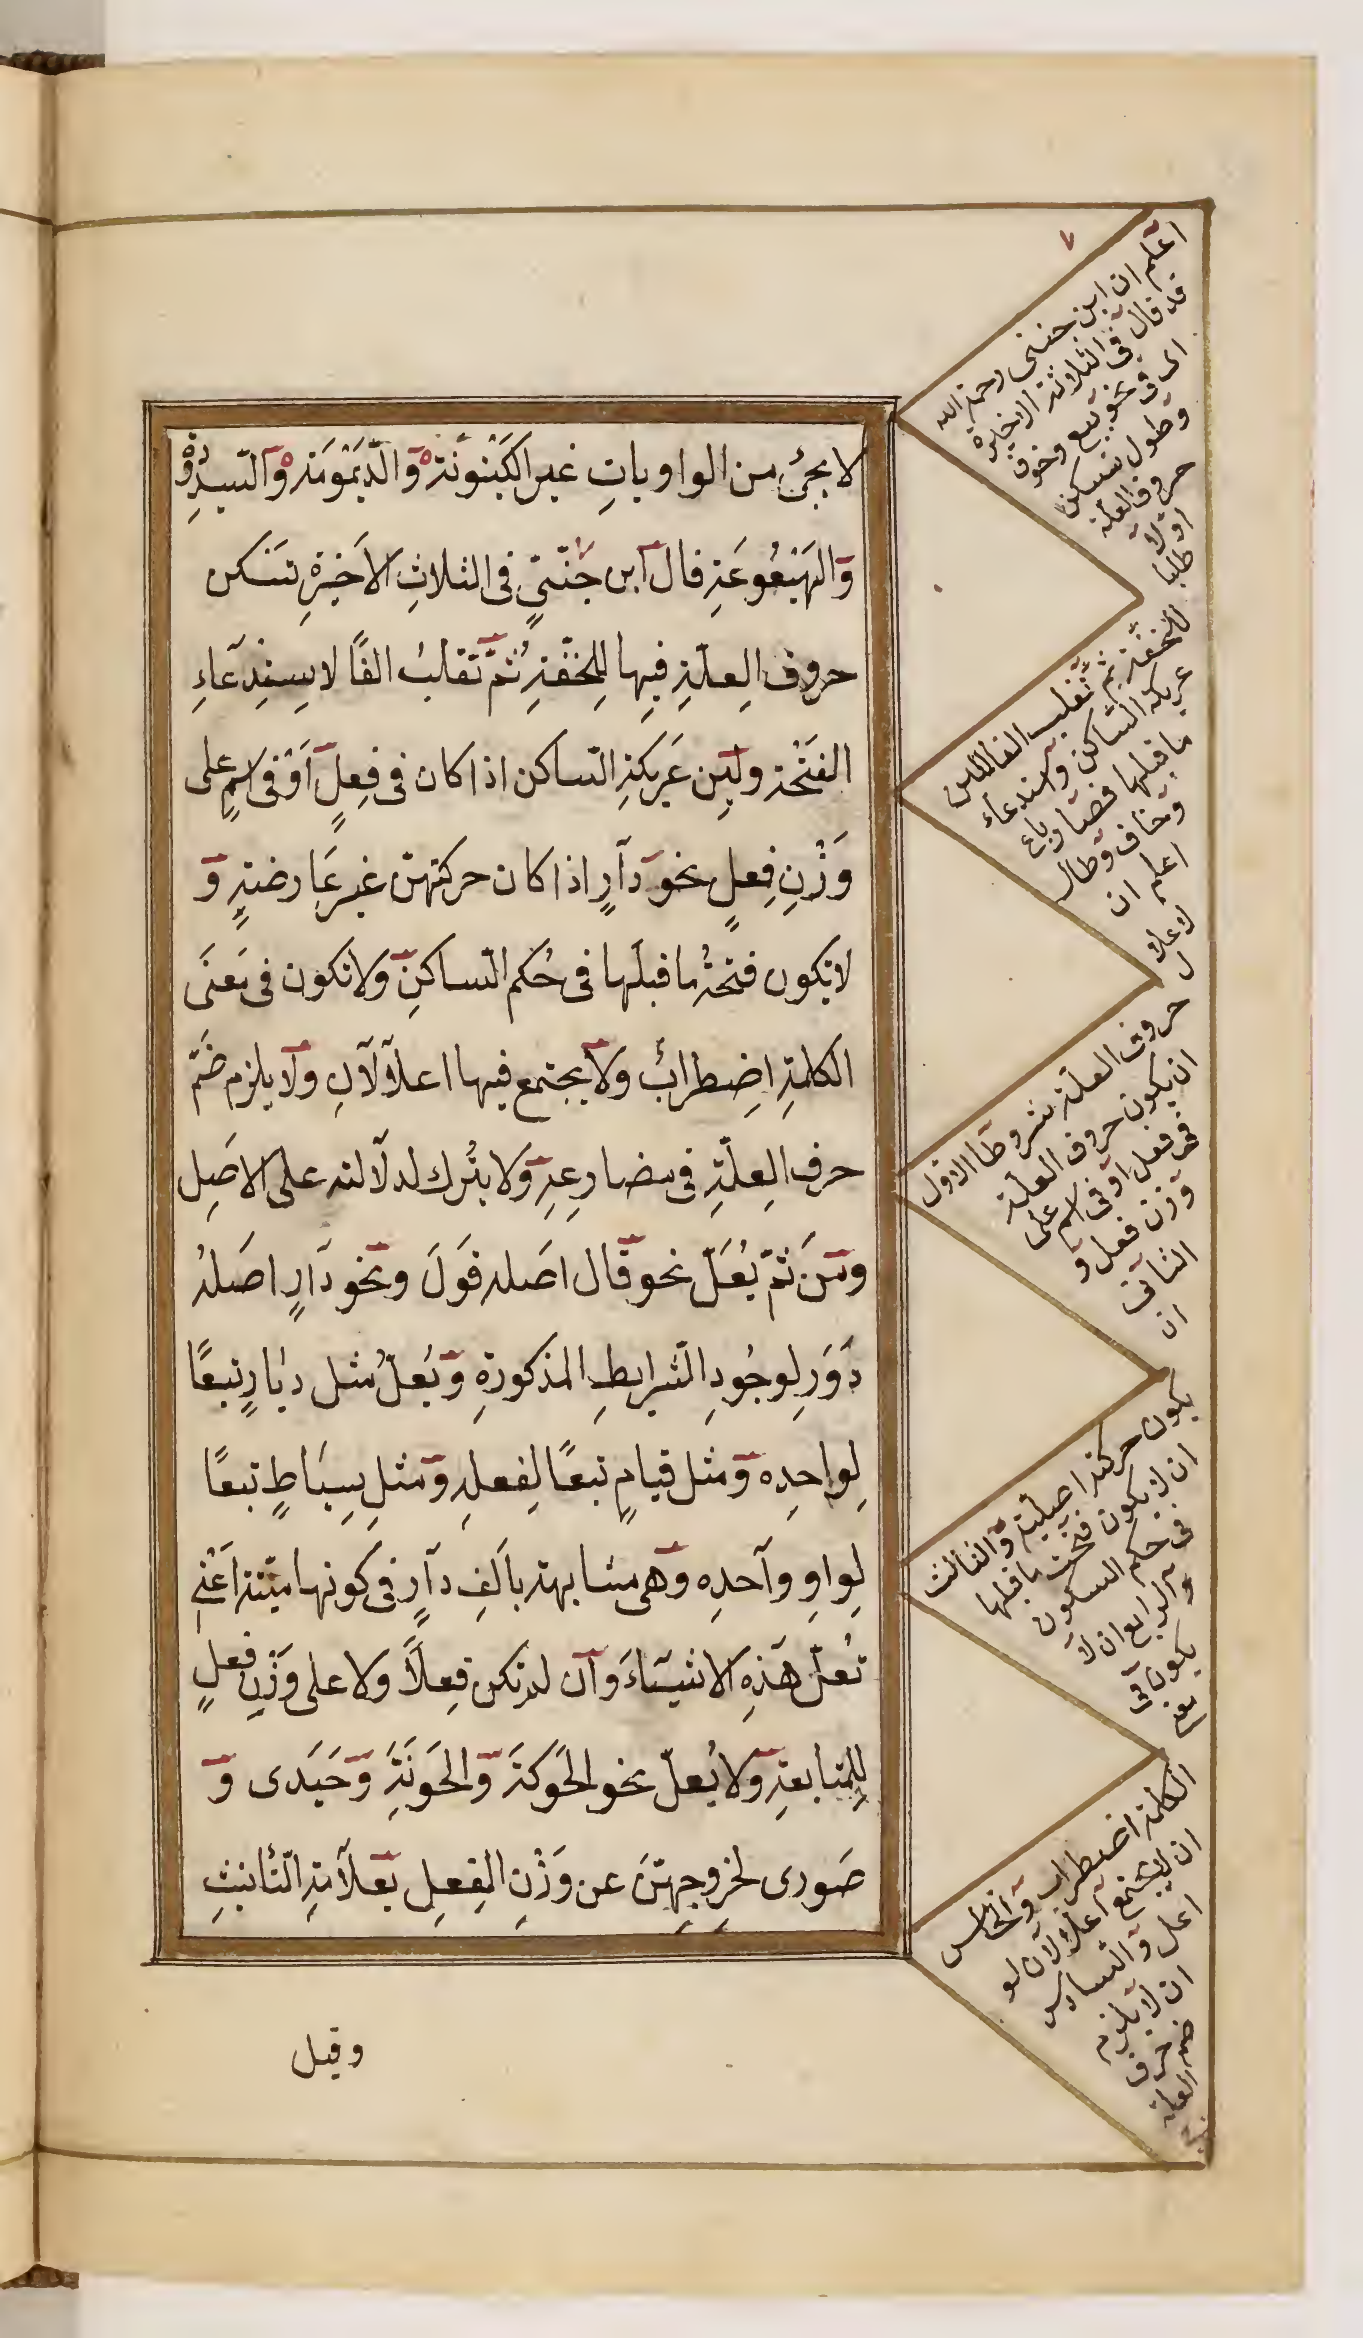 لا يجئ من الواويات غير الكَيَّنونَة وَالدّيَمْومَة وَالسّيدودة
وَالهَيْعُوعَةِ قال ابن جَنّىٍ فى الثلاثِ الاَخيرةِ تسَكن
حروف العِلّةِ فيها لِلخفّةِ ثمّ تقلبُ الفًا لاِستِدعَاءِ
الفَتْحة ولِين عَريكةِ السّاكن اذا كان فى فِعلٍ اَوْ فى اسمٍ على
وَزْنِ فِعلٍ نحو دَارٍ اذا كان حركتهنّ غير عَارضةٍ وَ
لا يكون فتحةُ ما قبلَها فى حُكم السّاكنِ ولا تكون فى مَعنَى
الكلمةِ اضِطرابٌ ولا يجتمع فيها اعلاَلاَنِ ولا يلزم ضَمّ
حرفِ العِلّةِ فى مضارِعِهِ وَلا يتْرك لدلاَلته على الاصَلِ
ومن ثمّ يُعَلّ نحو قال اصَله قَوَلَ ونحو دَارٍ اصَلهُ
دَوَر لِوجُودِ الشّرايطِ المذكورةِ وَيُعلّ مثل ديٰارٍ تبعًا
لِواحدِه وَمثل قيامٍ تبعًا لِفعلهِ وَمثلِ سِيَاطٍ تبعًا
لِواوِ واَحدِه وَهى مشابهة باَلفِ دَارٍ فى كونها ميّتة اَعْنى
تُعلّ هَذِهِ الاشيَاءَ وَاَن لم تكن فِعلاً ولا على وَزْنِ فعلٍ
لِلمتابعةِ وَلا يُعلّ نحو الحَوَكَة وَالحَوَنَةِ وَحَيَدى وَ
صَورى لخرِوجِهنّ عن وَزْنِ الفِعلِ بعَلاَمةِ التّأنيثِ
وقيل
اعلم ان ابن جنىّ رحمة الله
قد قال فى الثلاثة الاخيرة
اى فى نحو بيع وخوف
وطول تسكن
حروف العلّة
اولا
طلبا
للخفّة ثم تقلب الفا للين
عريكة السّاكن واستدعاء
ما قبلها فصار باع
وخاف وطال
اعلم ان
لاعلال
حروف العلّة شروطا الاول
ان يكون حروف العلّة
فى فعل او فى اسم على
وزن فعل و
الثانى
ان
يكون حركته اصليّة والثالث
ان لا يكون فتحت ما قبلها
فى حكم السكون
والرابع ان لا
يكون فى
معنى
الكلمة اضطراب والخامس
ان لا يجتمع اعلالان لو
اعل والسادس
ان لا يلزم
ضم حرف
العلة